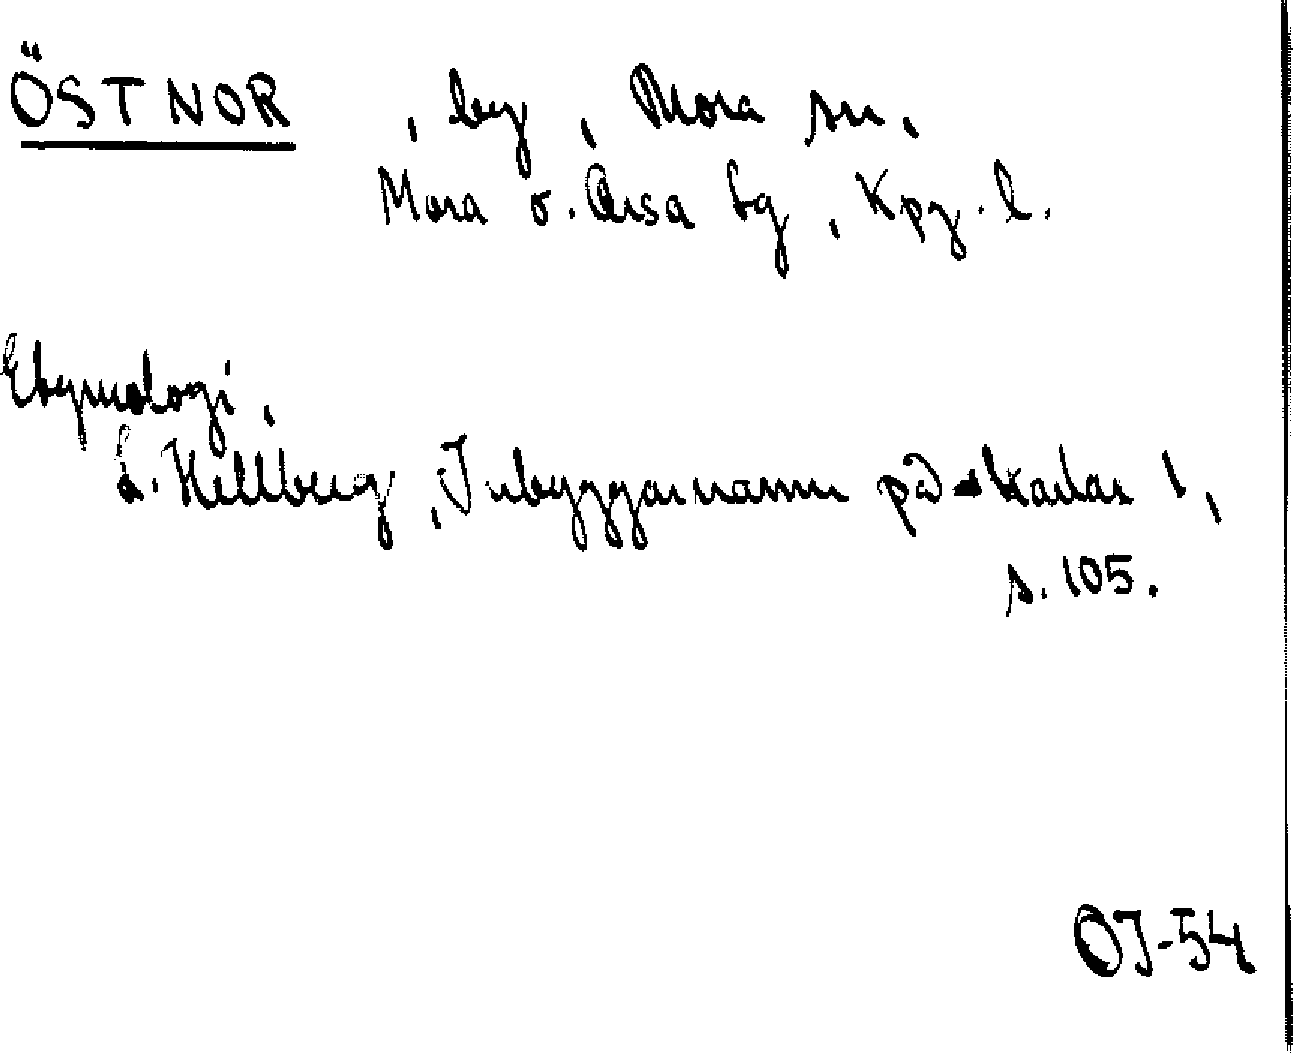 ÖSTNOR, by, Mora sn,
Mora o. Orsa tg, Kpg. l.
Etymologi,
L. Hellberg, Inbyggarnamn på -karlar 1,
s. 105.
OJ-54